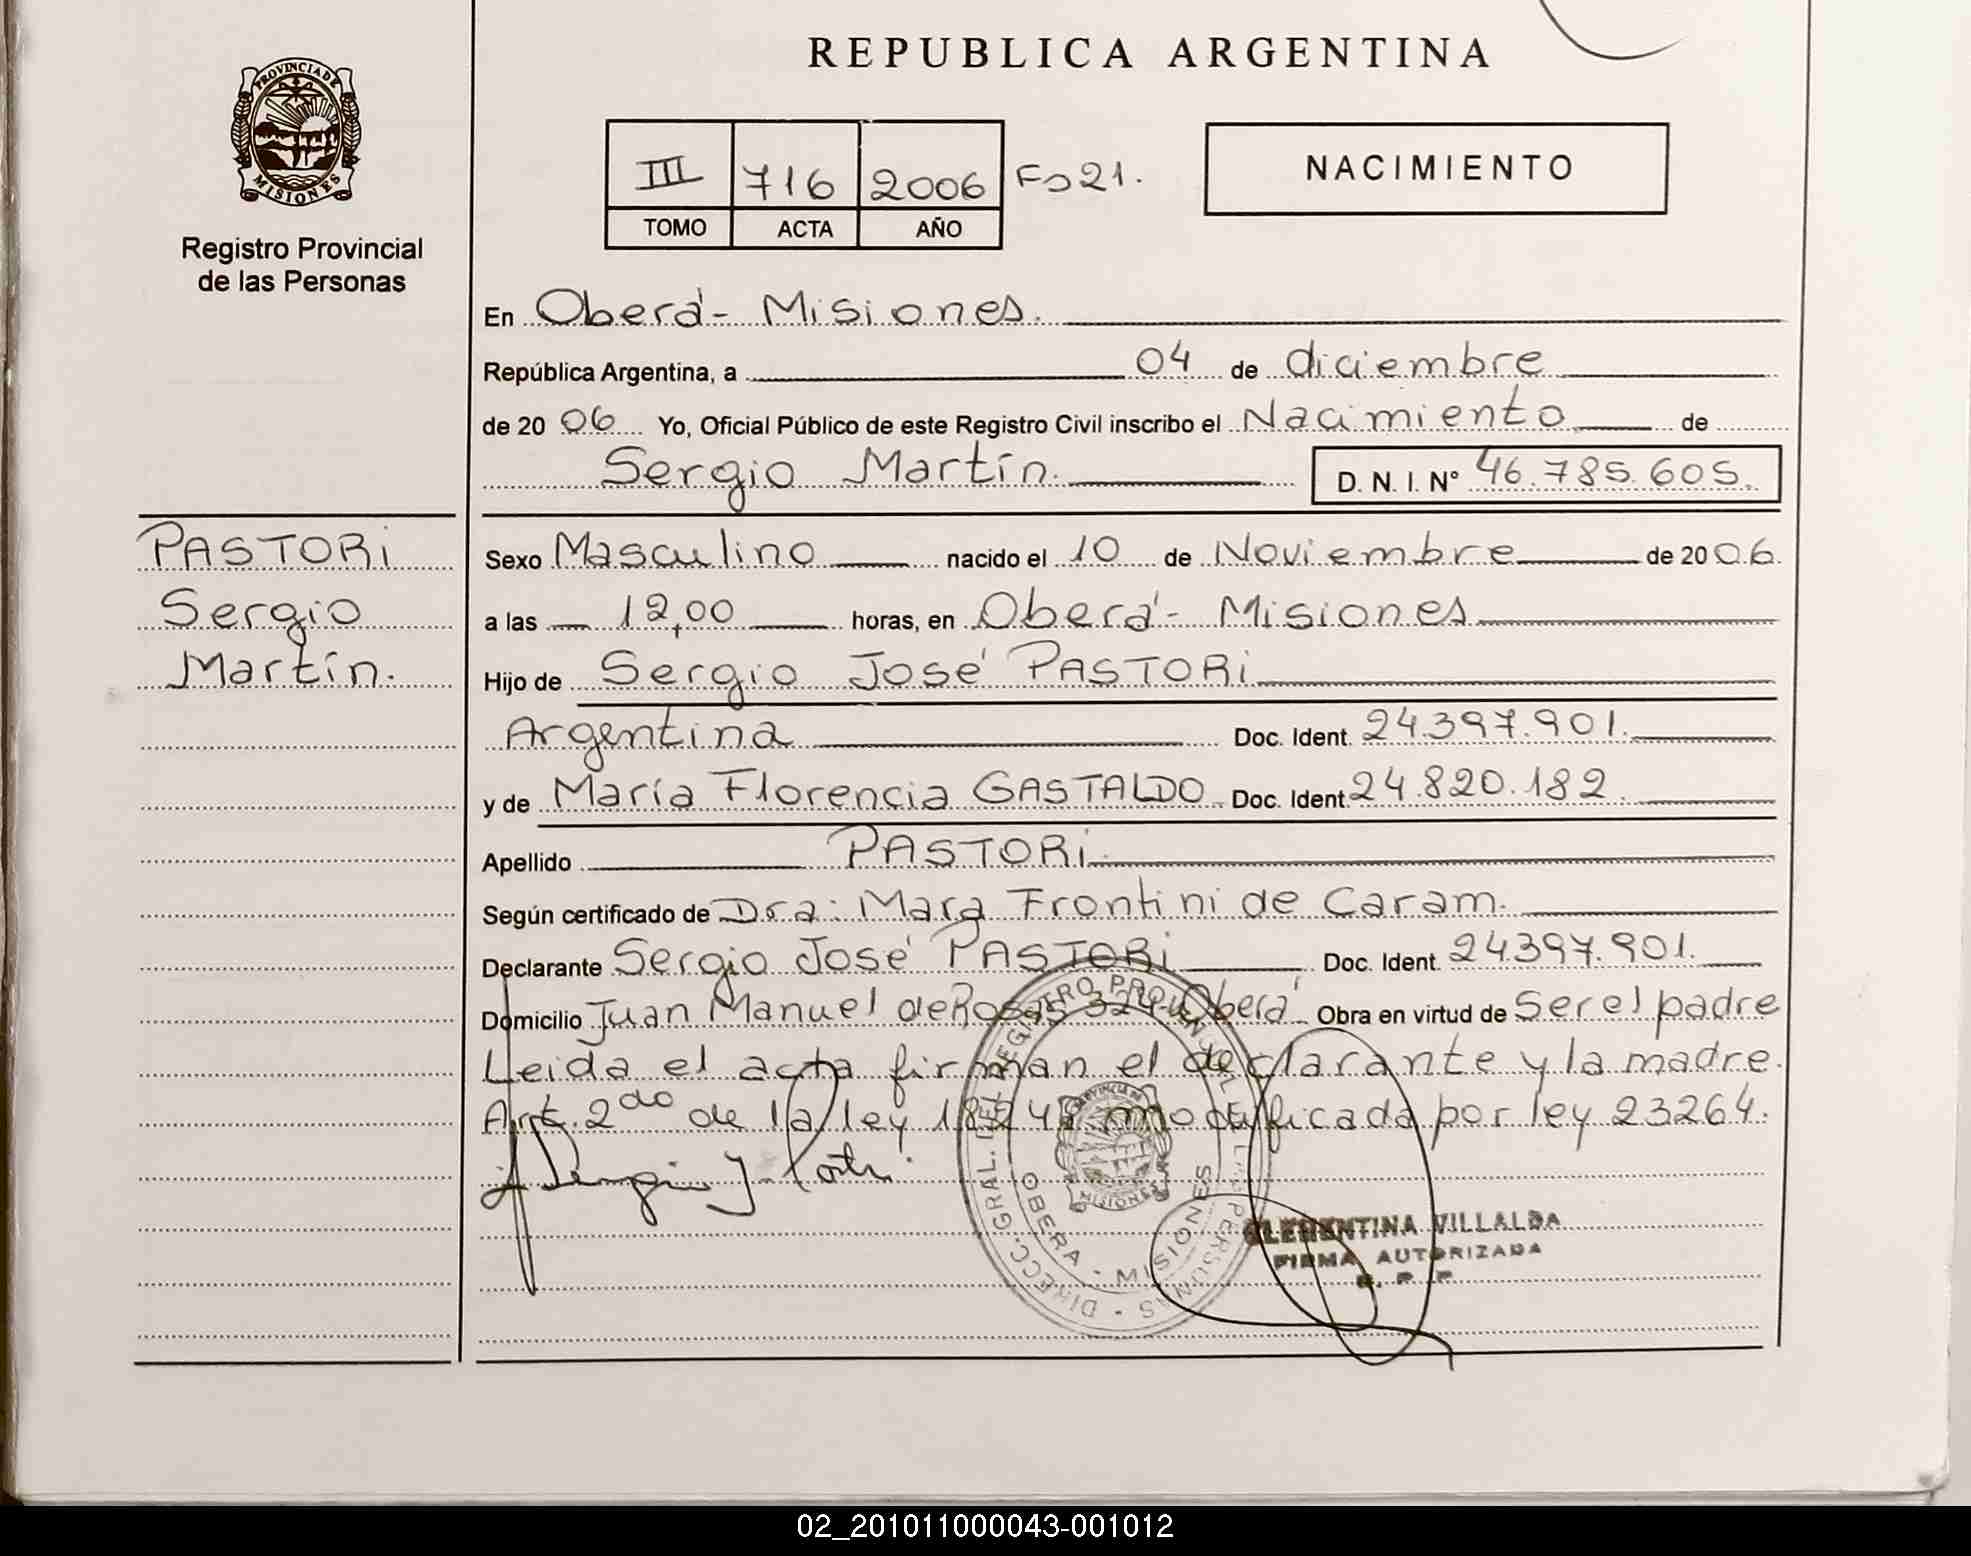 REPUBLICA ARGENTINA
PROVINCIA DE
MISIONES
Registro Provincial
de las Personas
III 716 2006 Fo 21.
TOMO ACTA AÑO
NACIMIENTO
En Oberá - Misiones.
República Argentina, a 04 de diciembre
de 20 06 Yo, Oficial Público de este Registro Civil inscribo el Nacimiento de
Sergio Martín. D. N. I. N° 46.785.605.
PASTORI
Sergio
Martín.
Sexo Masculino nacido el 10 de Noviembre de 20 06.
a las 12,00 horas, en Oberá - Misiones
Hijo de Sergio José PASTORI
Argentina Doc. Ident. 24.397.901.
y de María Florencia GASTALDO Doc. Ident. 24.820.182.
Apellido PASTORI
Según certificado de Dra: Mara Frontini de Caram.
Declarante Sergio José PASTORI Doc. Ident. 24.397.901.
Domicilio Juan Manuel de Rosas Oberá Obra en virtud de Ser el padre
Leida el acta firman el declarante y la madre.
Art. 2do de la ley 18248 modificada por ley 23264.
DIRECC. GRAL. DEL REGISTRO PROVINCIAL DE LAS PERSONAS
OBERA - MISIONES
MISIONES
CLEMENTINA VILLALBA
FIRMA AUTORIZADA
R. P. P.
02_201011000043-001012